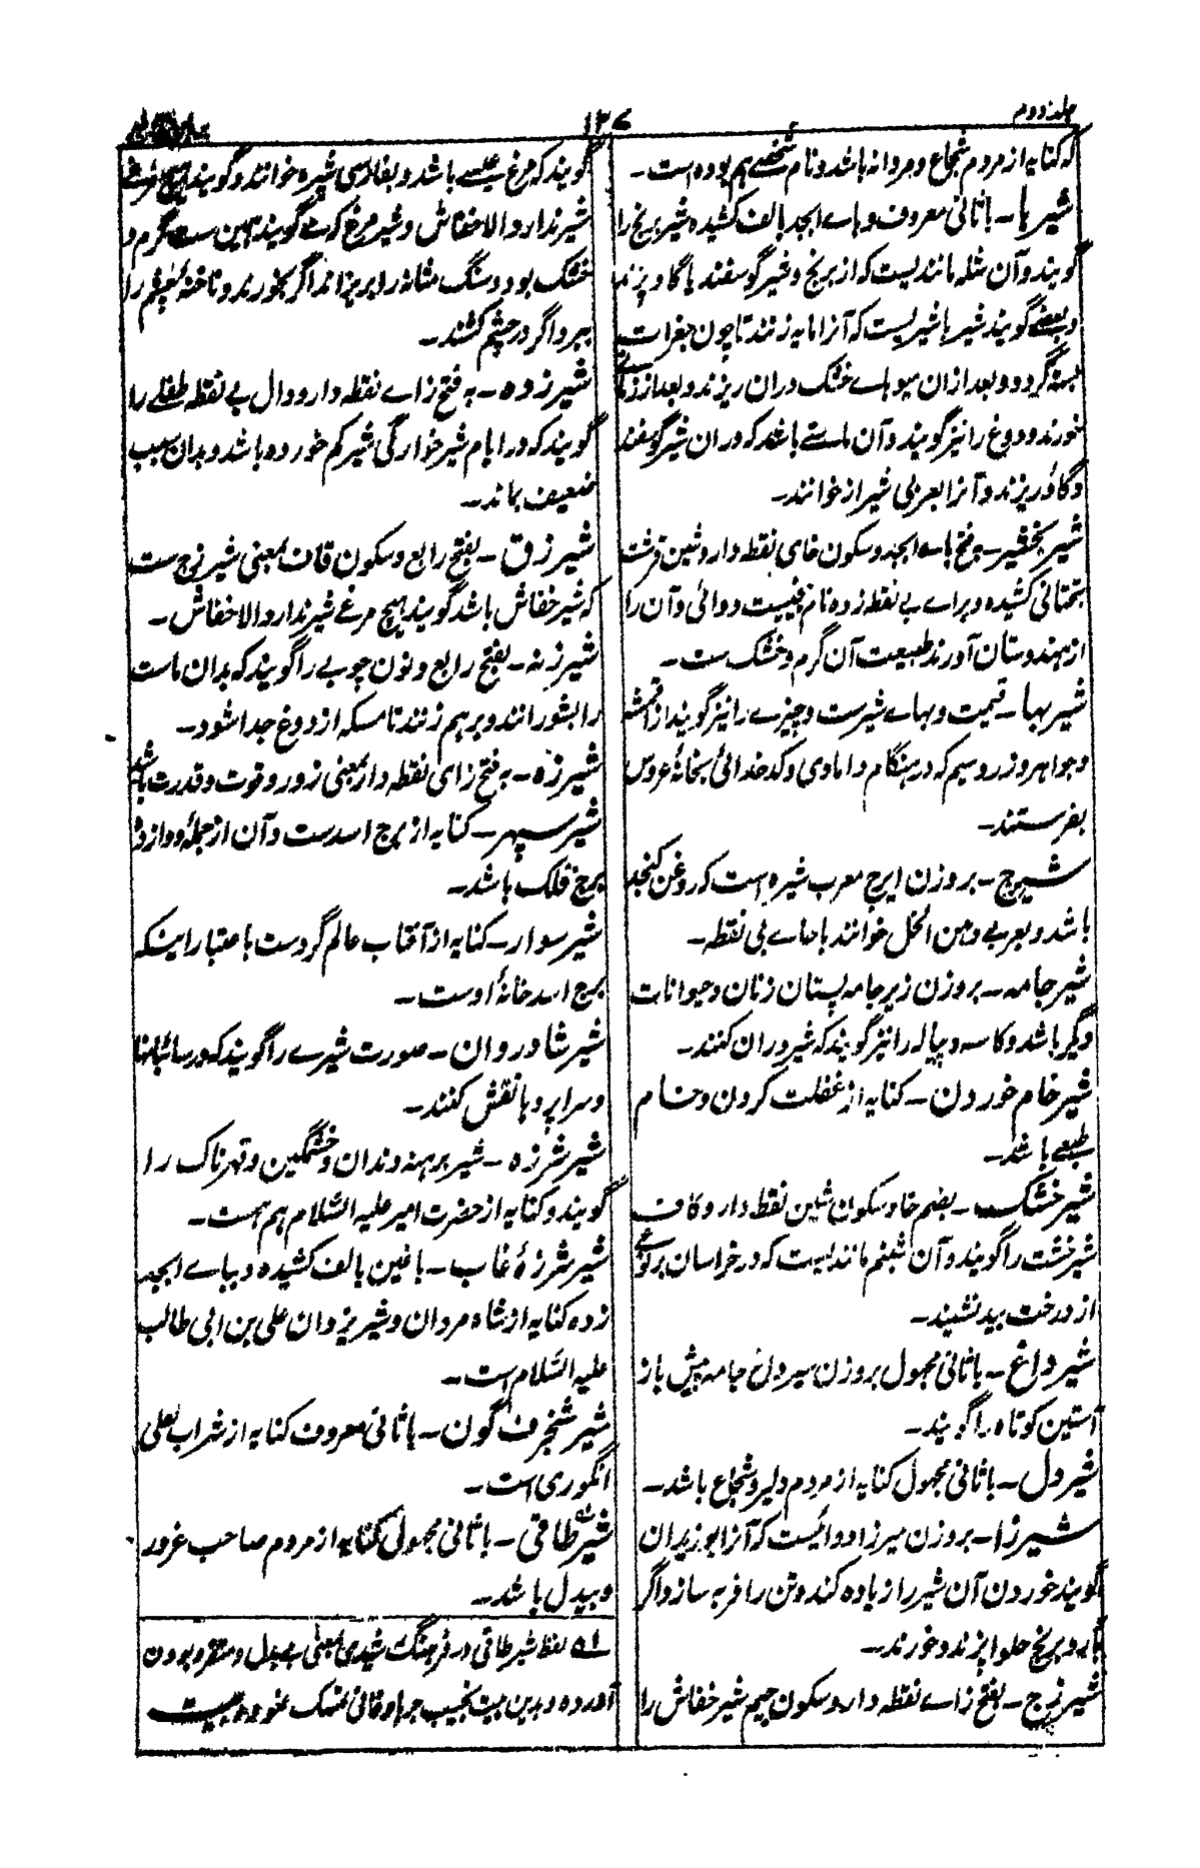 جلد دوم
۱۳۷
که کنایه از مردم شجاع و مردانه باشد و نام شخصے هم بوده است ـ
شیربا ـ باثانی معروف و باے ابجد بالف کشیده شیر برنج را
گویند و آن شله مانندیست که از برنج و شیر گوسفند یا گاو پزند
و بعضے گویند شیربا شیریست که آنرا مایه زنند تا چون جغرات
بسته گردد و بعد ازان میوہاے خشک دران ریزند و بعد از
خورند و دوغ را نیز گویند و آن ماستے باشد که دران شیر گوسفند
و گاو ریزند و آنرا بعربی شیراز خوانند ـ
شیر بخشیر ـ بفتح باے ابجد و سکون خای نقطه دار و شین قرشت
بتحتانی کشیده و براے بے نقطه زده نام دوائی و آن را
از هندوستان آورند طبیعت آن گرم و خشک ست ـ
شیر بہا ـ قیمت و بہاے شیرست و چیزے را نیز گویند از قمشه
و جواہر و زر و سیم که در ہنگام دامادی و کدخدائی بخانۀ عروس
بفرستند ـ
شیرج ـ بروزن ایرج معرب شیره است که روغن کنجد
باشد و بعربے دهن الحل خوانند باحاے بی نقطه ـ
شیر جامه ـ بروزن زیر جامه پستان زنان و حیوانات
دیگر باشد و کاسه و پیاله را نیز گویند که شیر دران کنند ـ
شیر خام خوردن ـ کنایه از غفلت کردن و خام
طبعے باشد ـ
شیر خشک ـ بضم خا و سکون شین نقطه دار و کاف
شیر خشت را گویند و آن شبنم مانندیست که در خراسان بر نوعے
از درخت بید نشیند ـ
شیر داغ ـ باثانی مجهول بروزن سیر داغ جامه پیش باز
آستین کوتاه را گویند ـ
شیر دل ـ باثانی مجهول کنایه از مردم دلیر و شجاع باشد ـ
شیرزا ـ بروزن میرزا دوائیست که آنرا بوزیدان
گویند خوردن آن شیر را زیاده کند و تن را فربه سازد و اگر
با برنج حلوا پزند و خورند ـ
شیر زج ـ بفتح زاے نقطه دار و سکون جیم شیر خفاش را
گویند که مرغ عیسے باشد و بفارسی شپره خوانند و گویند هیچ مرغے
شیر ندارد الا خفاش و شیر مرغ که مے گویند همین ست گرم و
خشک بود و سنگ مثانه را بریزاند اگر بخورند و ناخنۀ چشم را
ببرد اگر در چشم کشند ـ
شیر زده ـ به فتح زاے نقطه دار و دال بی نقطه طفلے را
گویند که در ایام شیر خوارگی شیر کم خورده باشد و بدان سبب
ضعیف بماند ـ
شیر زق ـ بفتح رابع و سکون قاف بمعنی شیر زج ست
که شیر خفاش باشد گویند هیچ مرغے شیر ندارد الا خفاش ـ
شیر زنه ـ بفتح رابع و نون چوبے را گویند که بدان ماست
را بشورانند و برهم زنند تا مسکه از دوغ جدا شود ـ
شیرزه ـ به فتح زای نقطه دار بمعنی زور و قوت و قدرت باشد
شیر سپهر ـ کنایه از برج اسدست و آن از جملۀ دوازده
برج فلک باشد ـ
شیر سوار ـ کنایه از آفتاب عالم گردست باعتبار اینکه
برج اسد خانۀ اوست ـ
شیر شادروان ـ صورت شیرے را گویند که در سائبانها
و سراپردها نقش کنند ـ
شیر شرزه ـ شیر برهنه دندان و خشمگین و قهرناک را
گویند و کنایه از حضرت امیر علیه السّلام هم هست ـ
شیر شرزۀ غاب ـ باغین بالف کشیده و بباے ابجد
زده کنایه از شاه مردان و شیر یزدان علی بن ابی طالب
علیه السّلام است ـ
شیر شنجرف گون ـ باثانی معروف کنایه از شراب لعلی
انگوری است ـ
شیر طاقی ـ باثانی مجهول کنایه از مردم صاحب غرور
و بیدل باشد ـ
له لفظ شیر طاقی در فرهنگ رشیدی بمعنی بیدل و متفرد بودن
آورده و بدین بیت نجیب جرباوقانی تمسک نموده بیت